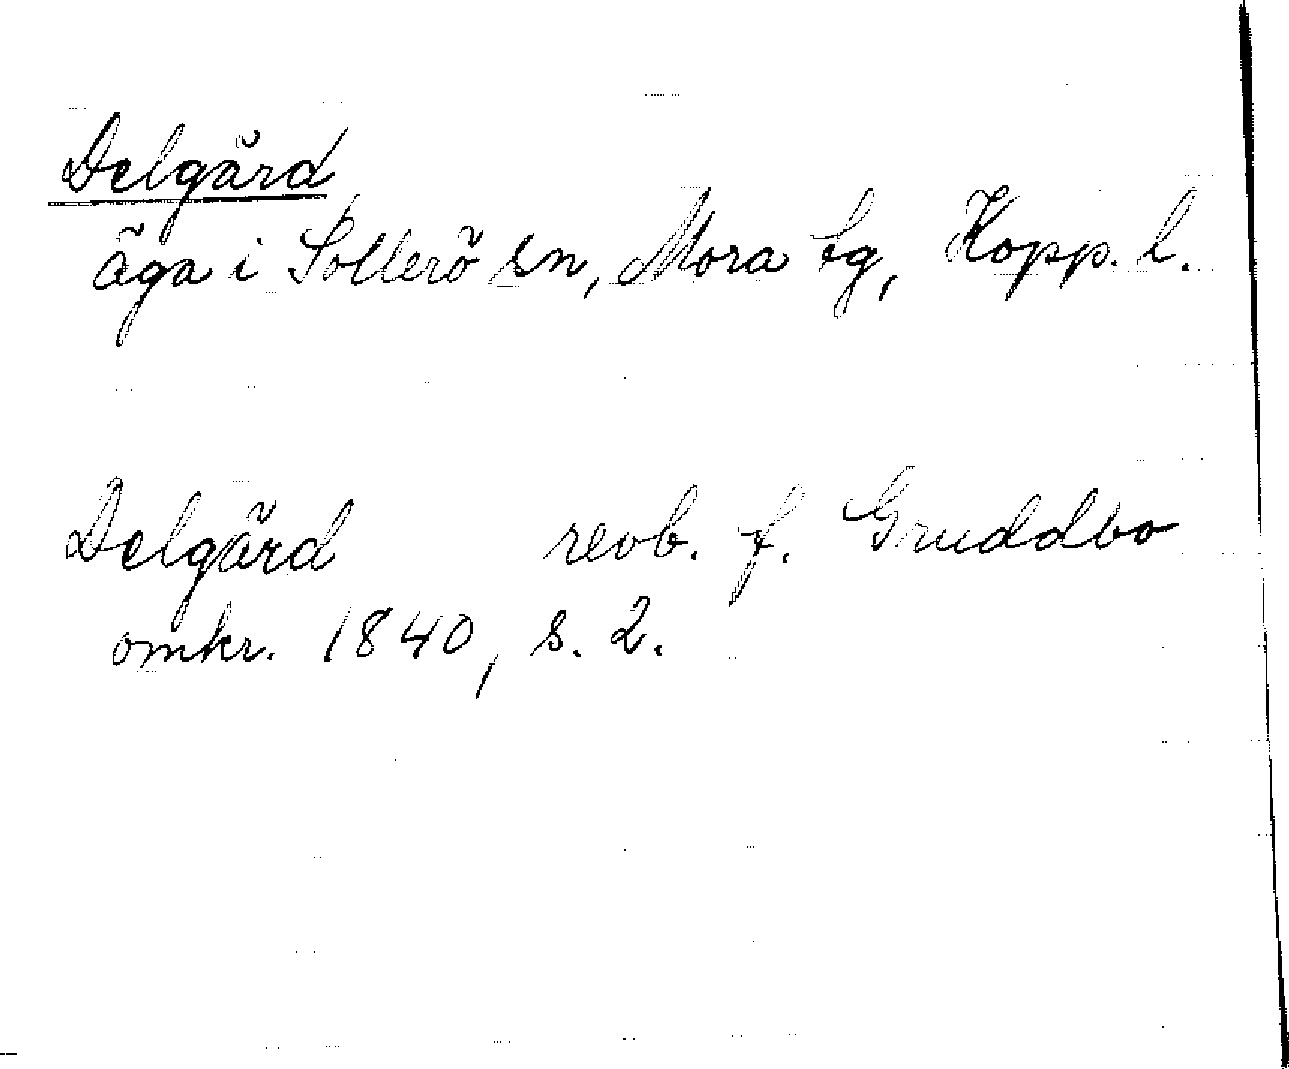 Delgärd
äga i Sollerö sn, Mora tg, Kopp. l.
Delgärd revb. f. Gruddbo
omkr. 1840, s. 2.